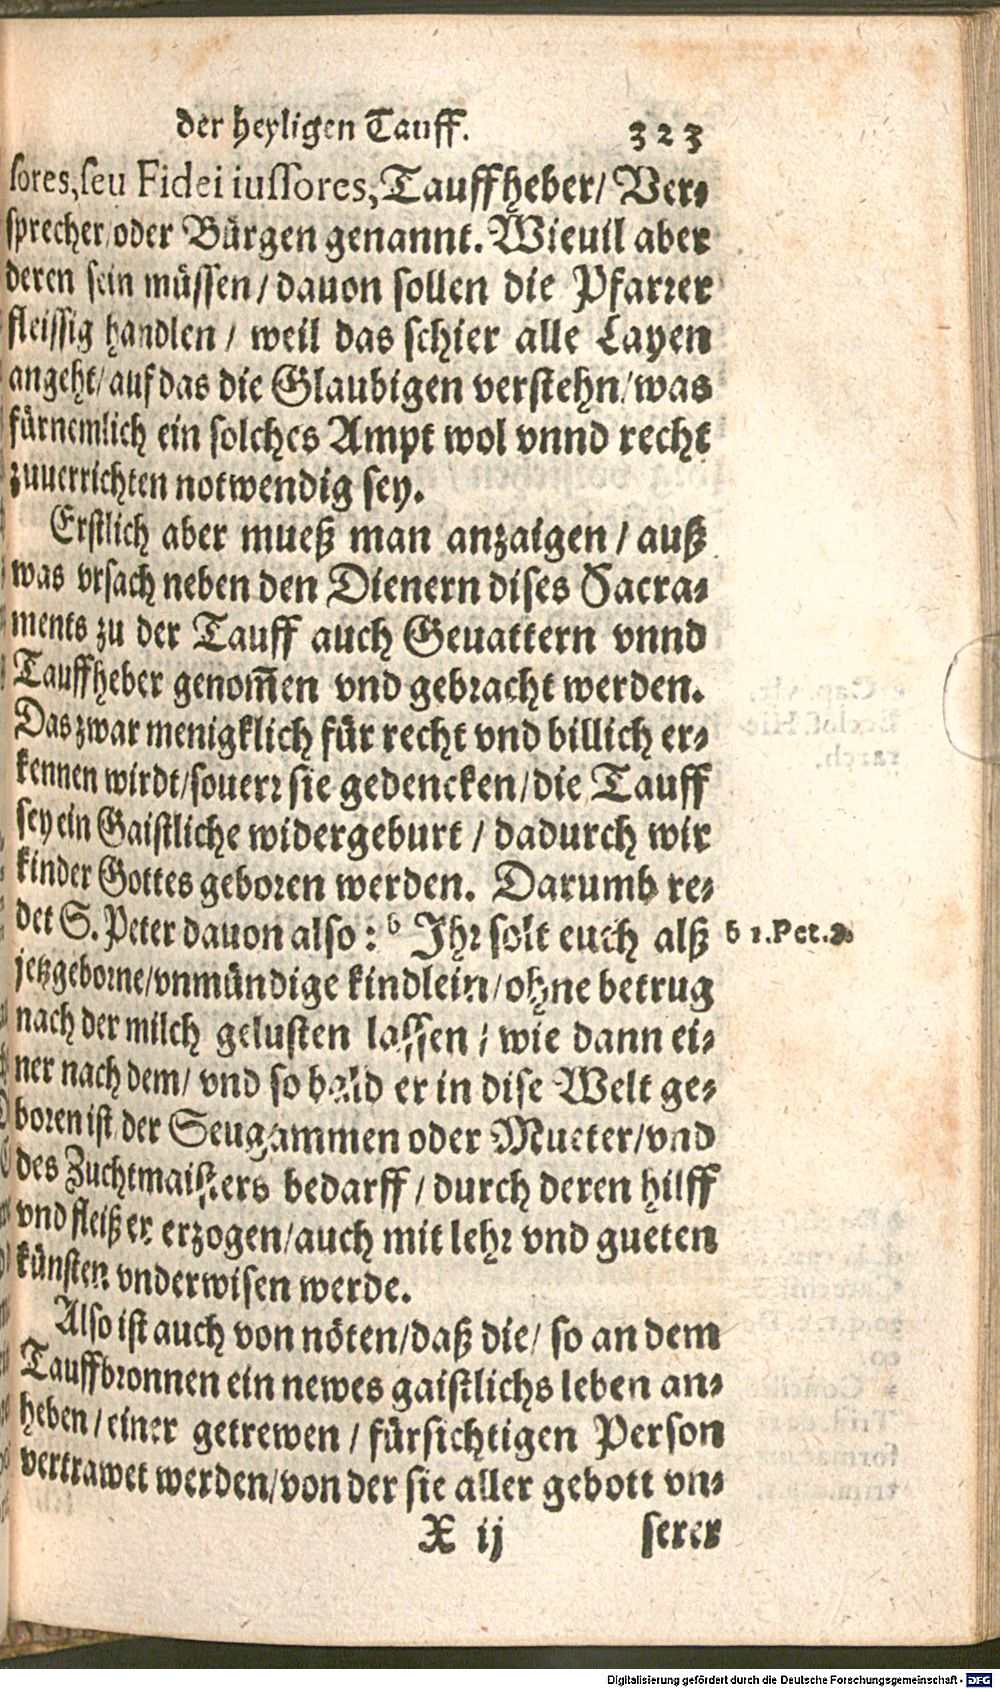 der heyligen Tauff. 323
sores, seu Fidei iussores, Tauffheber/ Ver-
sprecher/oder Bürgen genannt. Wieuil aber
deren sein müssen/dauon sollen die Pfarrer
fleissig handlen / weil das schier alle Layen
angeht/auf das die Glaubigen verstehn/was
fürnemlich ein solches Ampt wol vnnd recht
zuuerrichten notwendig sey.
Erstlich aber mueß man anzaigen / auß
was vrsach neben den Dienern dises Sacra-
ments zu der Tauff auch Geuattern vnnd
Tauffheber genom̃en vnd gebracht werden.
Das zwar menigklich für recht vnd billich er-
kennen wirdt/souerr sie gedencken/die Tauff
sey ein Gaistliche widergeburt / dadurch wir
kinder Gottes geboren werden. Darumb re-
det S. Peter dauon also : b Ihr solt euch alß
b 1. Pet. 2.
jetzgeborne/vnmündige kindlein/ohne betrug
nach der milch gelusten lassen / wie dann ei-
ner nach dem/ vnd so bald er in dise Welt ge-
boren ist/der Seugammen oder Mueter/vnd
des Zuchtmaisters bedarff / durch deren hilff
vnd fleiß er erzogen/auch mit lehr vnd gueten
künsten vnderwisen werde.
Also ist auch von nöten/daß die/ so an dem
Tauffbronnen ein newes gaistlichs leben an-
heben/einer getrewen / fürsichtigen Person
vertrawet werden/von der sie aller gebott vn-
X ij serer
Digitalisierung gefördert durch die Deutsche Forschungsgemeinschaft - DFG